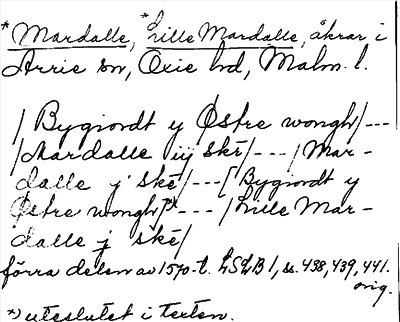 *Mardalle, *Lille Mardalle, åkrar i
Arrie sn, Oxie hd, Malm. l.
/Bygiordt y Østre wongh/---
/Mardalle iij skē/---/Mar-
dalle j skē/---[Bygiordt y
Østre wongh]---/Lille Mar-
dalle j skē/
förra delen av 1570-t. LSLB 1, ss. 438, 439, 441.
orig.
*) uteslutet i texten.